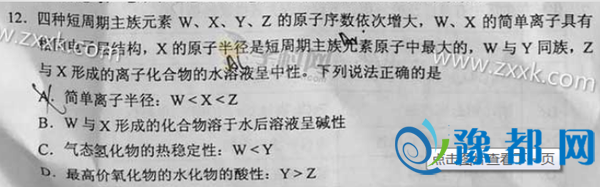 12. 四种短周期主族元素 W、X、Y、Z 的原子序数依次增大，W、X 的简单离子具有
电子层结构，X 的原子半径是短周期主族元素原子中最大的，W 与 Y 同族，Z
与 X 形成的离子化合物的水溶液呈中性。下列说法正确的是
A. 简单离子半径：W<X<Z
B. W 与 X 形成的化合物溶于水后溶液呈碱性
C. 气态氢化物的热稳定性：W<Y
D. 最高价氧化物的水化物的酸性：Y>Z
www.zxxk.com
www.zxxk.com
豫都网
点击图 查看 页